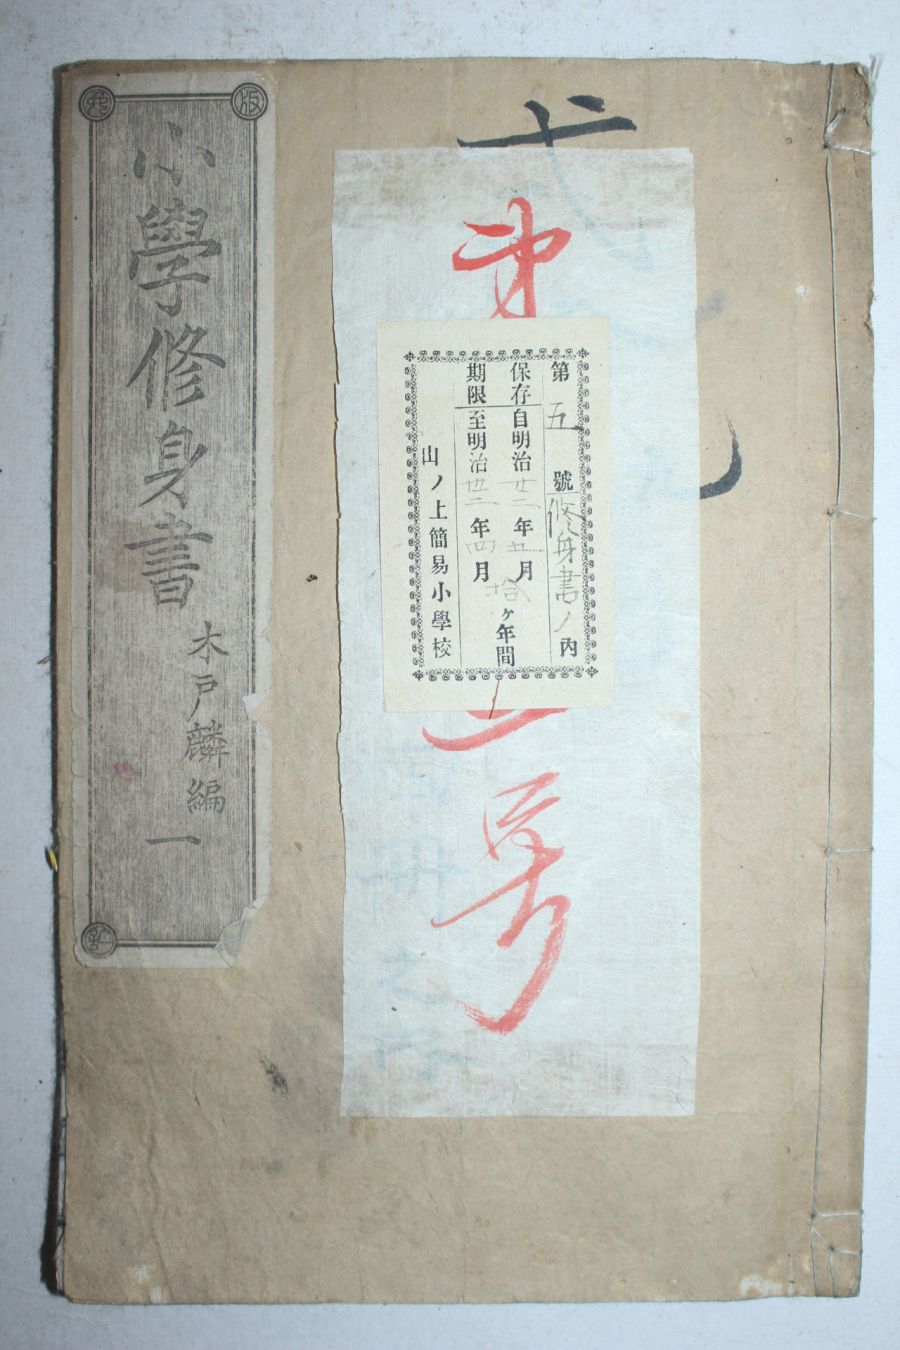 小學修身書
木戸麟編
一
版
第
號
第五號修身書ノ内
保存期限
自明治廿二年五月
至明治卅二年四月
拾ヶ年間
山ノ上簡易小學校
冊之内